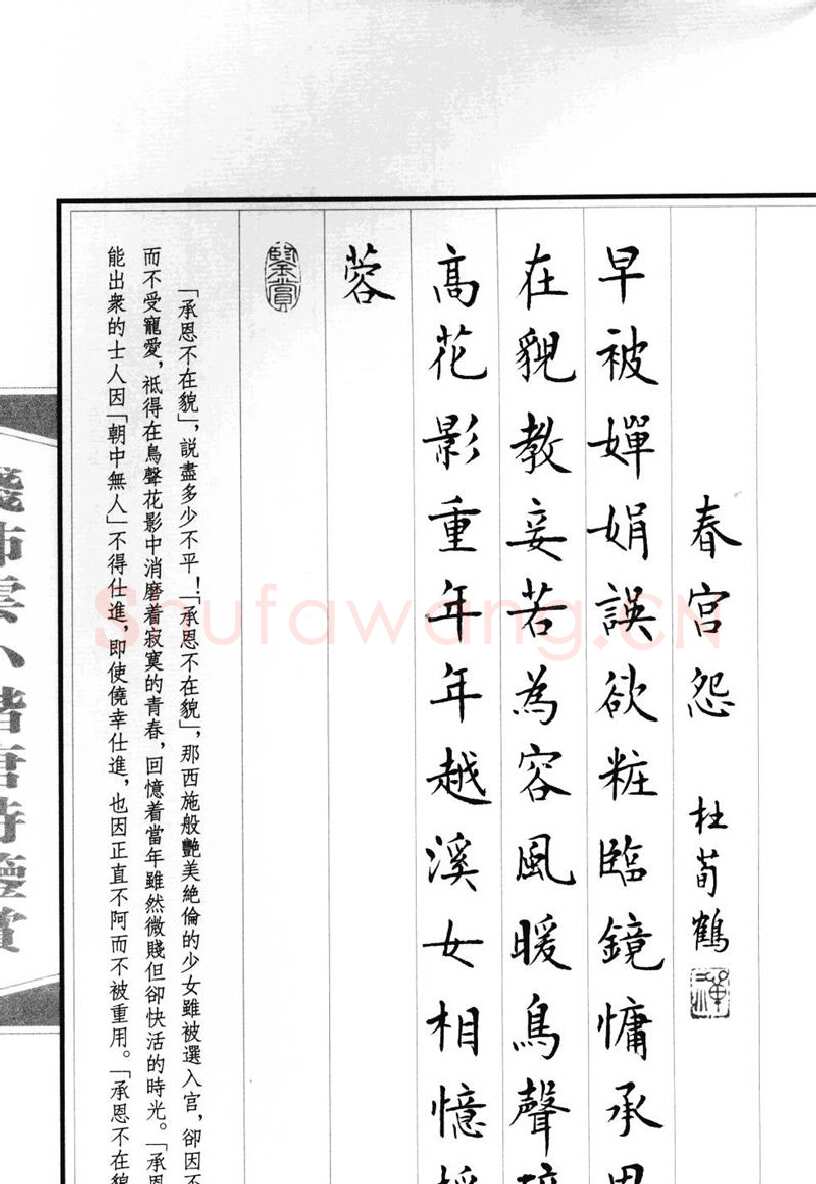 春宮怨 杜荀鶴
早被嬋娟誤欲粧臨鏡慵承恩
在貌教妾若為容風暖鳥聲碎
高花影重年年越溪女相憶採
蓉
鑒賞
「承恩不在貌」，說盡多少不平！「承恩不在貌」，那西施般艷美絶倫的少女雖被選入宫，卻因不
而不受寵愛，祗得在鳥聲花影中消磨着寂寞的青春，回憶着當年雖然微賤但卻快活的時光。「承恩
能出衆的士人因「朝中無人」不得仕進，即使僥幸仕進，也因正直不阿而不被重用。「承恩不在貌
小楷唐詩鑒賞
Shufawang.CN